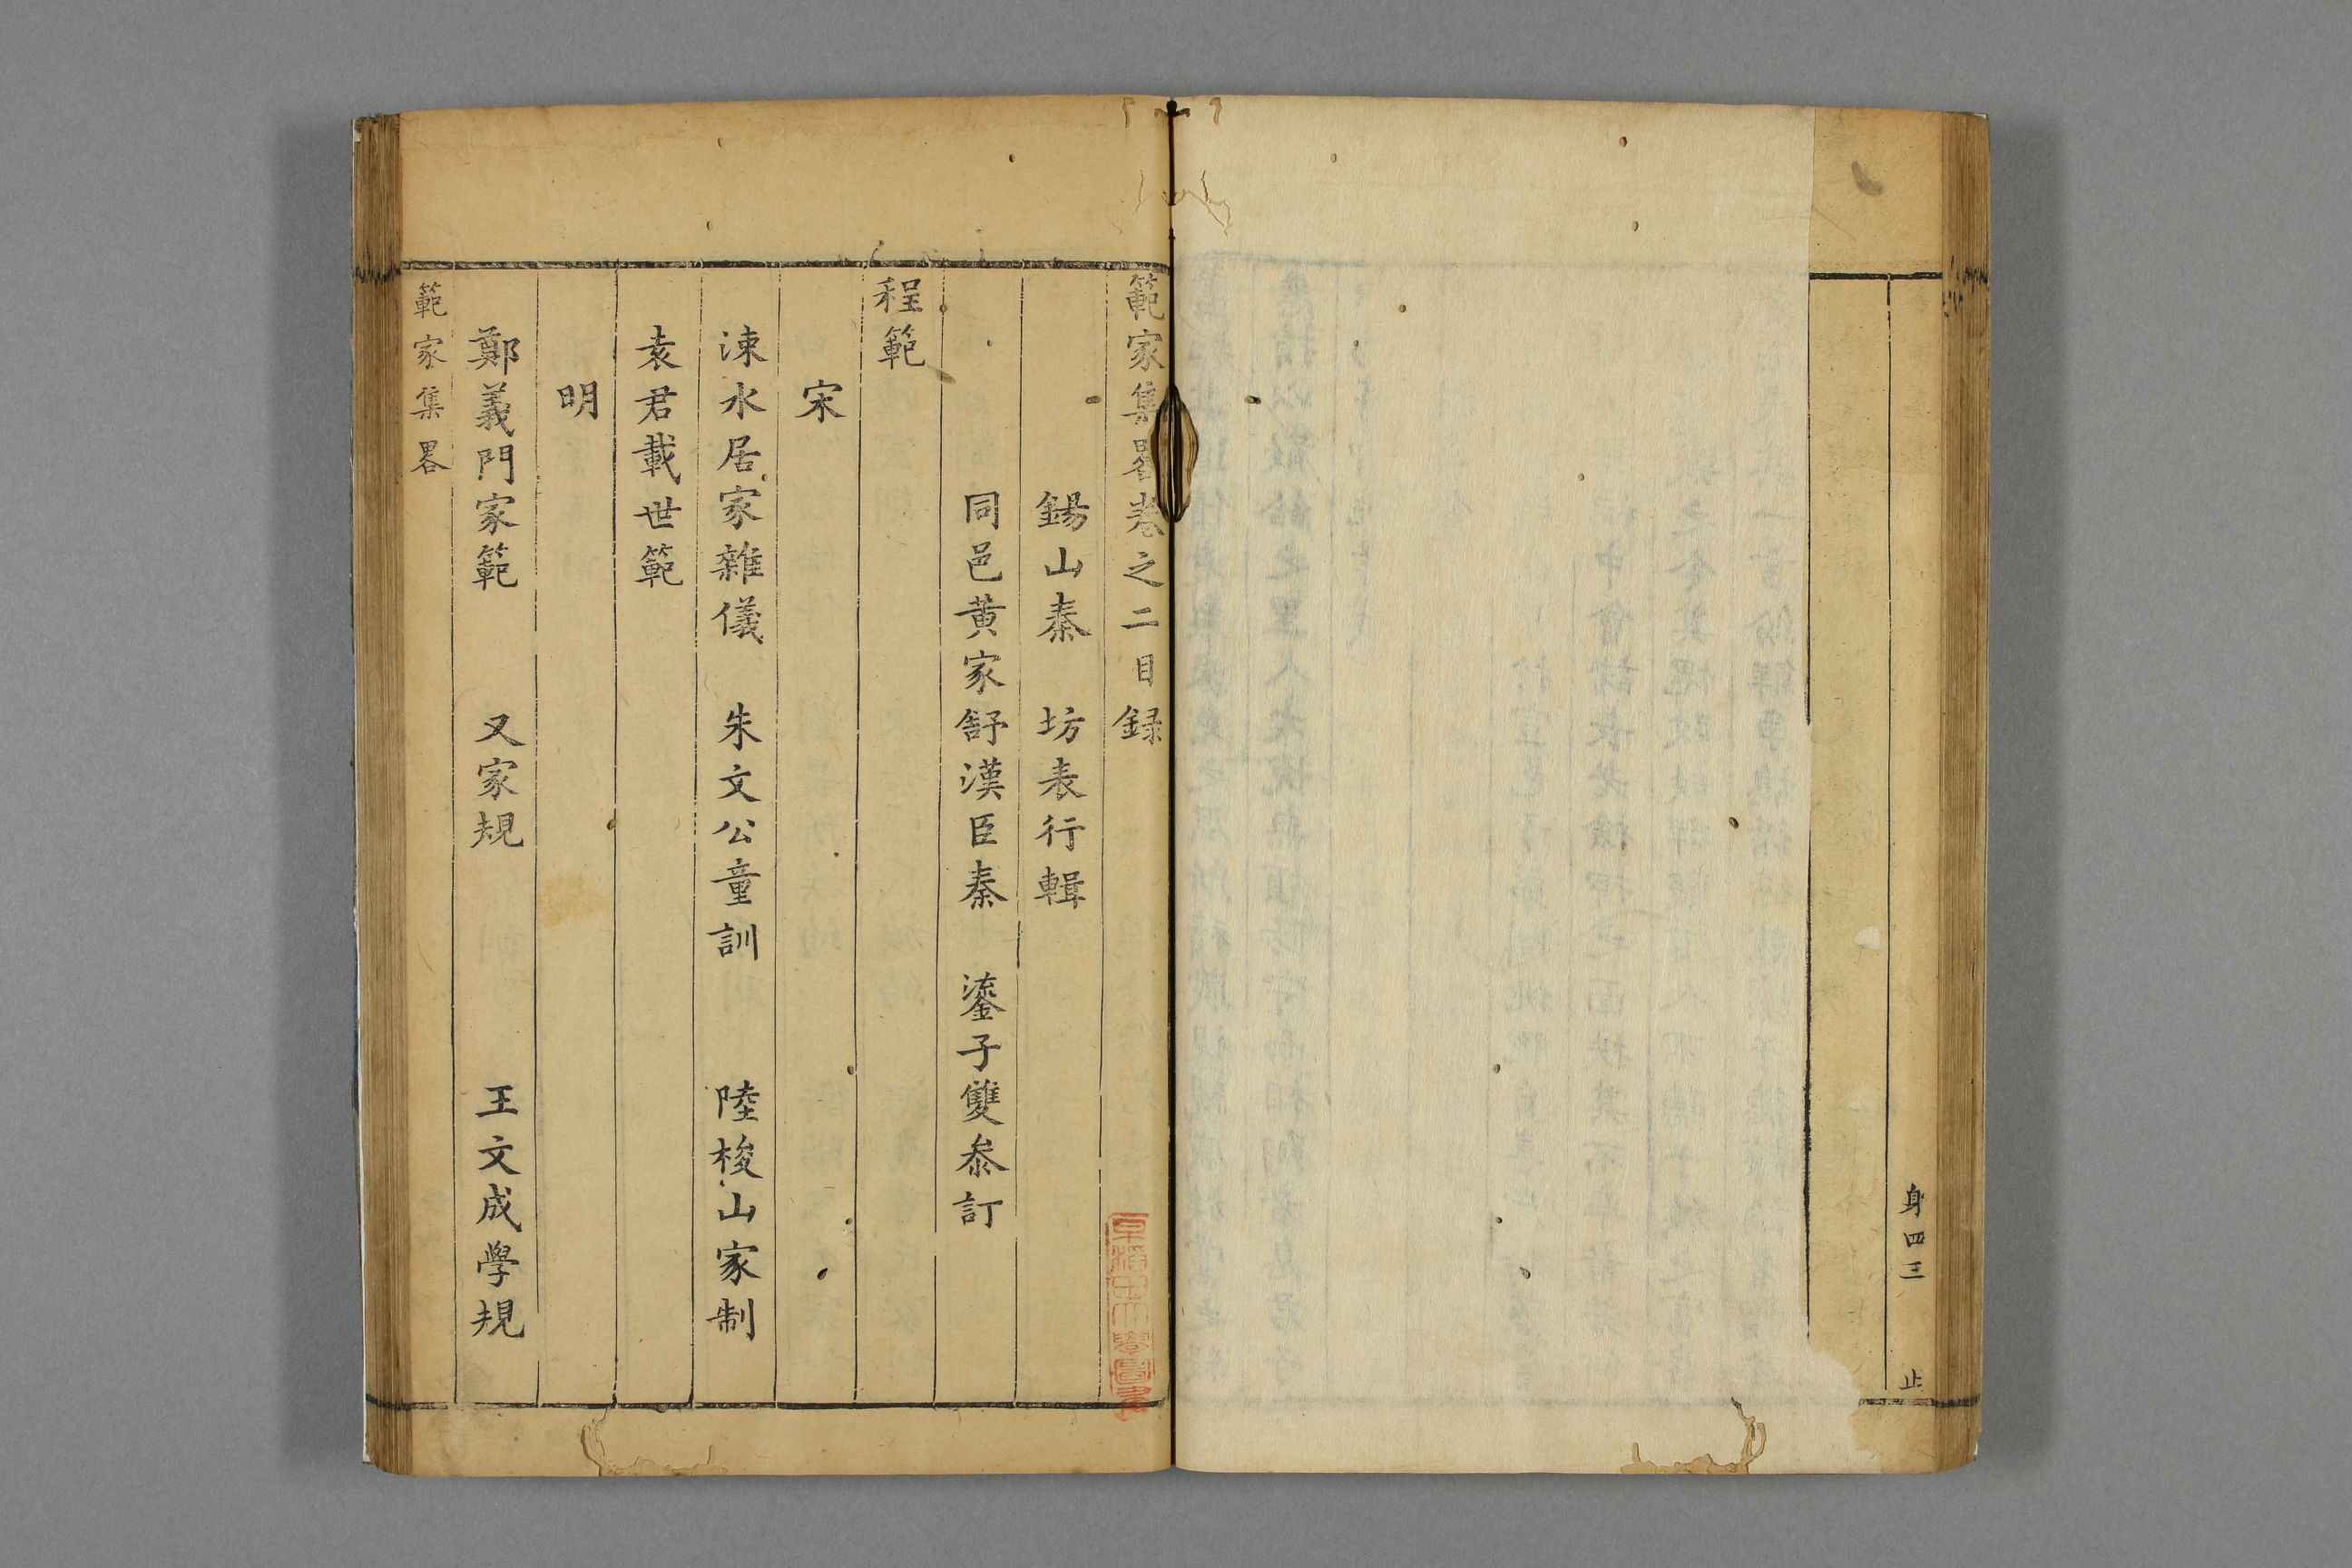 身四三 止
範家集畧卷之二目録
錫山秦 坊表行輯
同邑黄家舒漢臣秦 鎏子雙叅訂
程範
宋
涑水居家雜儀 朱文公童訓 陸梭山家制
袁君載世範
明
鄭義門家範 又家規 王文成學規
範家集畧
早稲田大學圖書